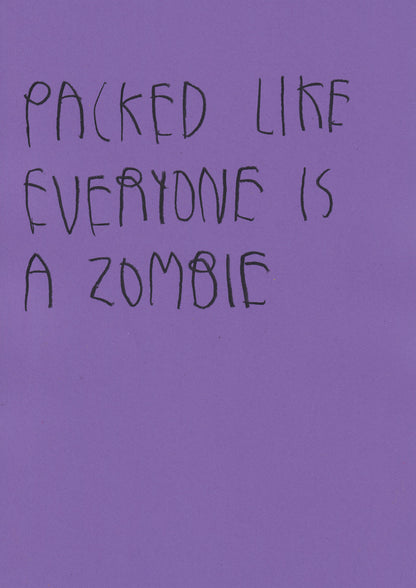 PACKED LIKE
EVERYONE IS
A ZOMBIE